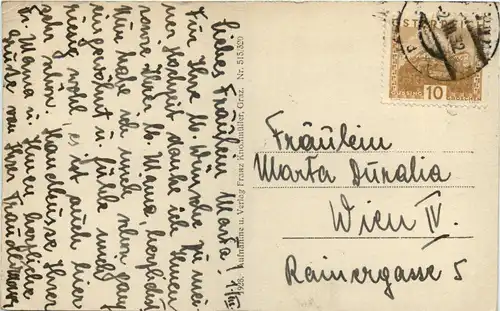 1./VII.
Liebes Fräulein Marta!
Für Ihre lb. Wünsche zu mei-
ner Hochzeit danke ich Ihnen
sowie Ihrer lb. Mama, herzlichst
Nun habe ich mich schon ganz
eingewöhnt u. fühle mich
riesig wohl, es ist auch hier
sehr schön. Handküsse Ihrer
lb. Mama u. Ihnen herzliche
Grüße von Ihrer
1928. Aufnahme u. Verlag Franz Knollmüller, Graz. Nr. 515.320
10
GÜSSING
Fräulein
Marta Duralia
Wien IV.
Rainergasse 5